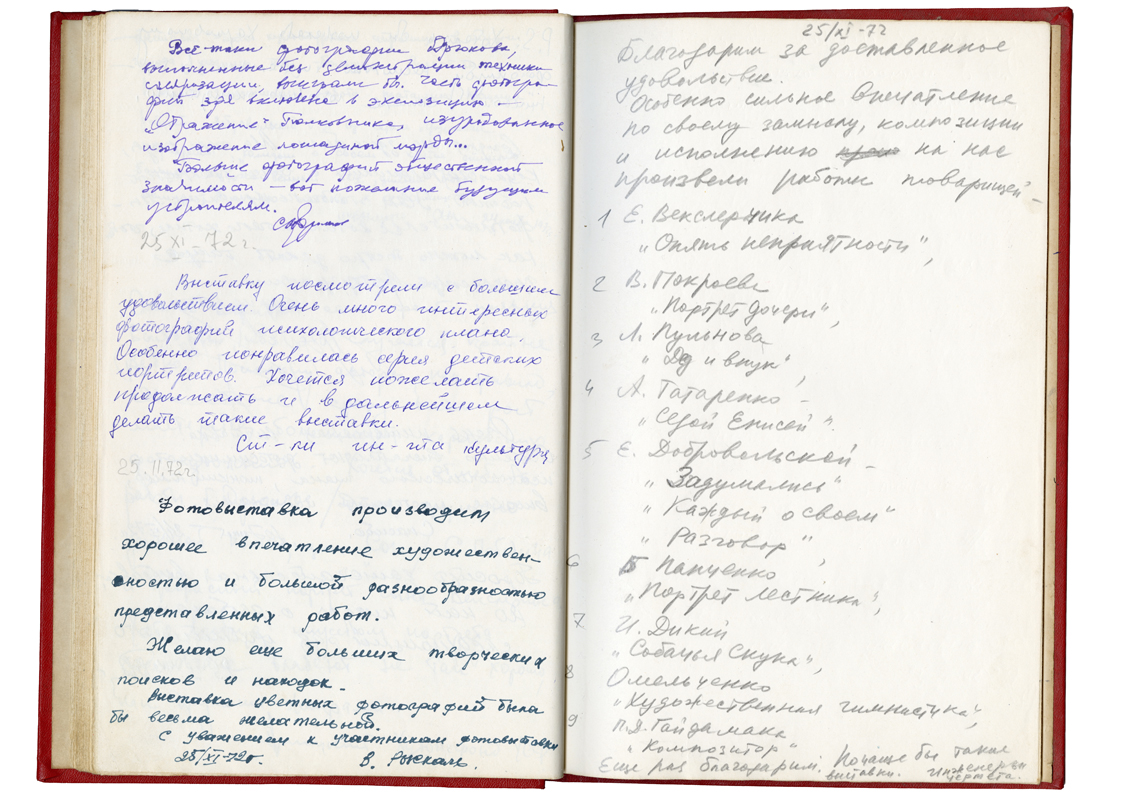 Все-таки фотографии Брюкова,
выполненные без демонстрации техники
соляризации, выиграли бы. Часть фотогра-
фий зря включена в экспозицию –
„Отражение" Полковника, изуродованное
изображение лошадиной морды...
Больше фотографий общественной
значимости – вот пожелание будущим
устроителям.
25 XI – 72 г.
Выставку посмотрели с большим
удовольствием. Очень много интересных
фотографий психологического плана.
Особенно понравилась серия детских
портретов. Хочется пожелать
продолжать и в дальнейшем
делать такие выставки.
Ст-ки ин-та культуры
25.11.72г.
Фотовыставка производит
хорошее впечатление художествен-
ностью и большой разнообразностью
представленных работ.
Желаю еще больших творческих
поисков и находок.
Выставка цветных фотографий была
бы весьма желательной.
С уважением к участникам фотовыставки
25/XI-72г. В.
25/XI-72
Благодарим за доставленное
удовольствие.
Особенно сильное впечатление
по своему замыслу, композиции
и исполнению на нас
произвели работы товарищей –
1 Е. Векслерчика
„Опять неприятности",
2 В. Покроева
„Портрет дочери",
3 Л. Пульнова
„Дед и внук",
4 А. Татаренко –
„Седой Енисей".
5 Е. Добровольской –
„Задумались"
„Каждый о своем"
„Разговор",
6 Б Панченко
„Портрет лестника",
7 И. Дикий
„Собачья скука",
8 Омельченко
„Художественная гимнастика",
9 П.Д. Гайдамака
„Композитор"
Еще раз благодарим. Почаще бы такие
выставки. Инженеры